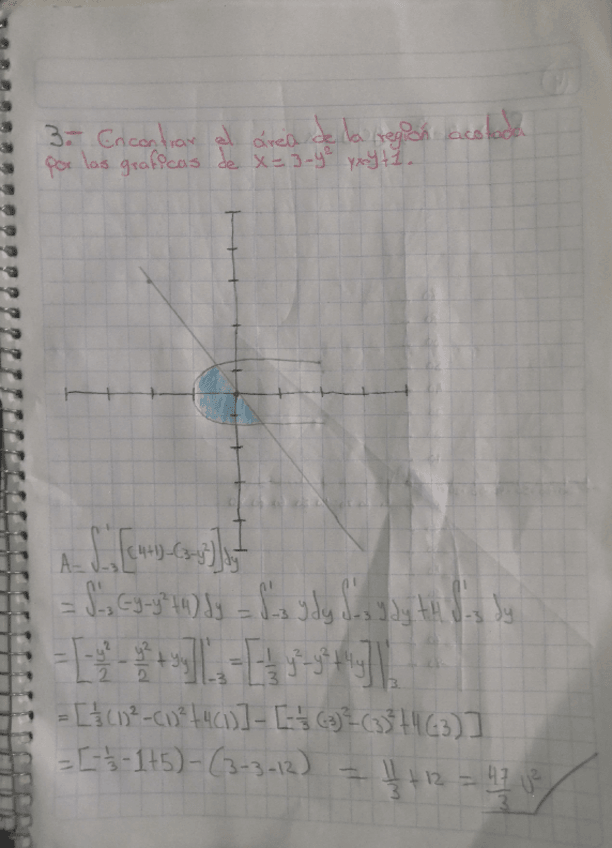 3.- Encontrar el área de la región acotada
por las graficas de x = 3 - y² y x = y + 1.
A = ∫₋₃¹ [(4+1)-(3-y²)] dy
= ∫₋₃¹ (-y-y²+4) dy = ∫₋₃¹ y dy ∫₋₃¹ y dy + 4 ∫₋₃¹ dy
= [-y²/2 - y²/2 + yy]|₋₃¹ = [-1/3 y² - y² + 4y]|₃¹
= [1/3 (1)² - (1)² + 4(1)] - [-1/3 (-3)² - (3)² + 4(-3)]
= [-1/3 - 1 + 5) - (3 - 3 - 12) = 11/3 + 12 = 47/3 U²